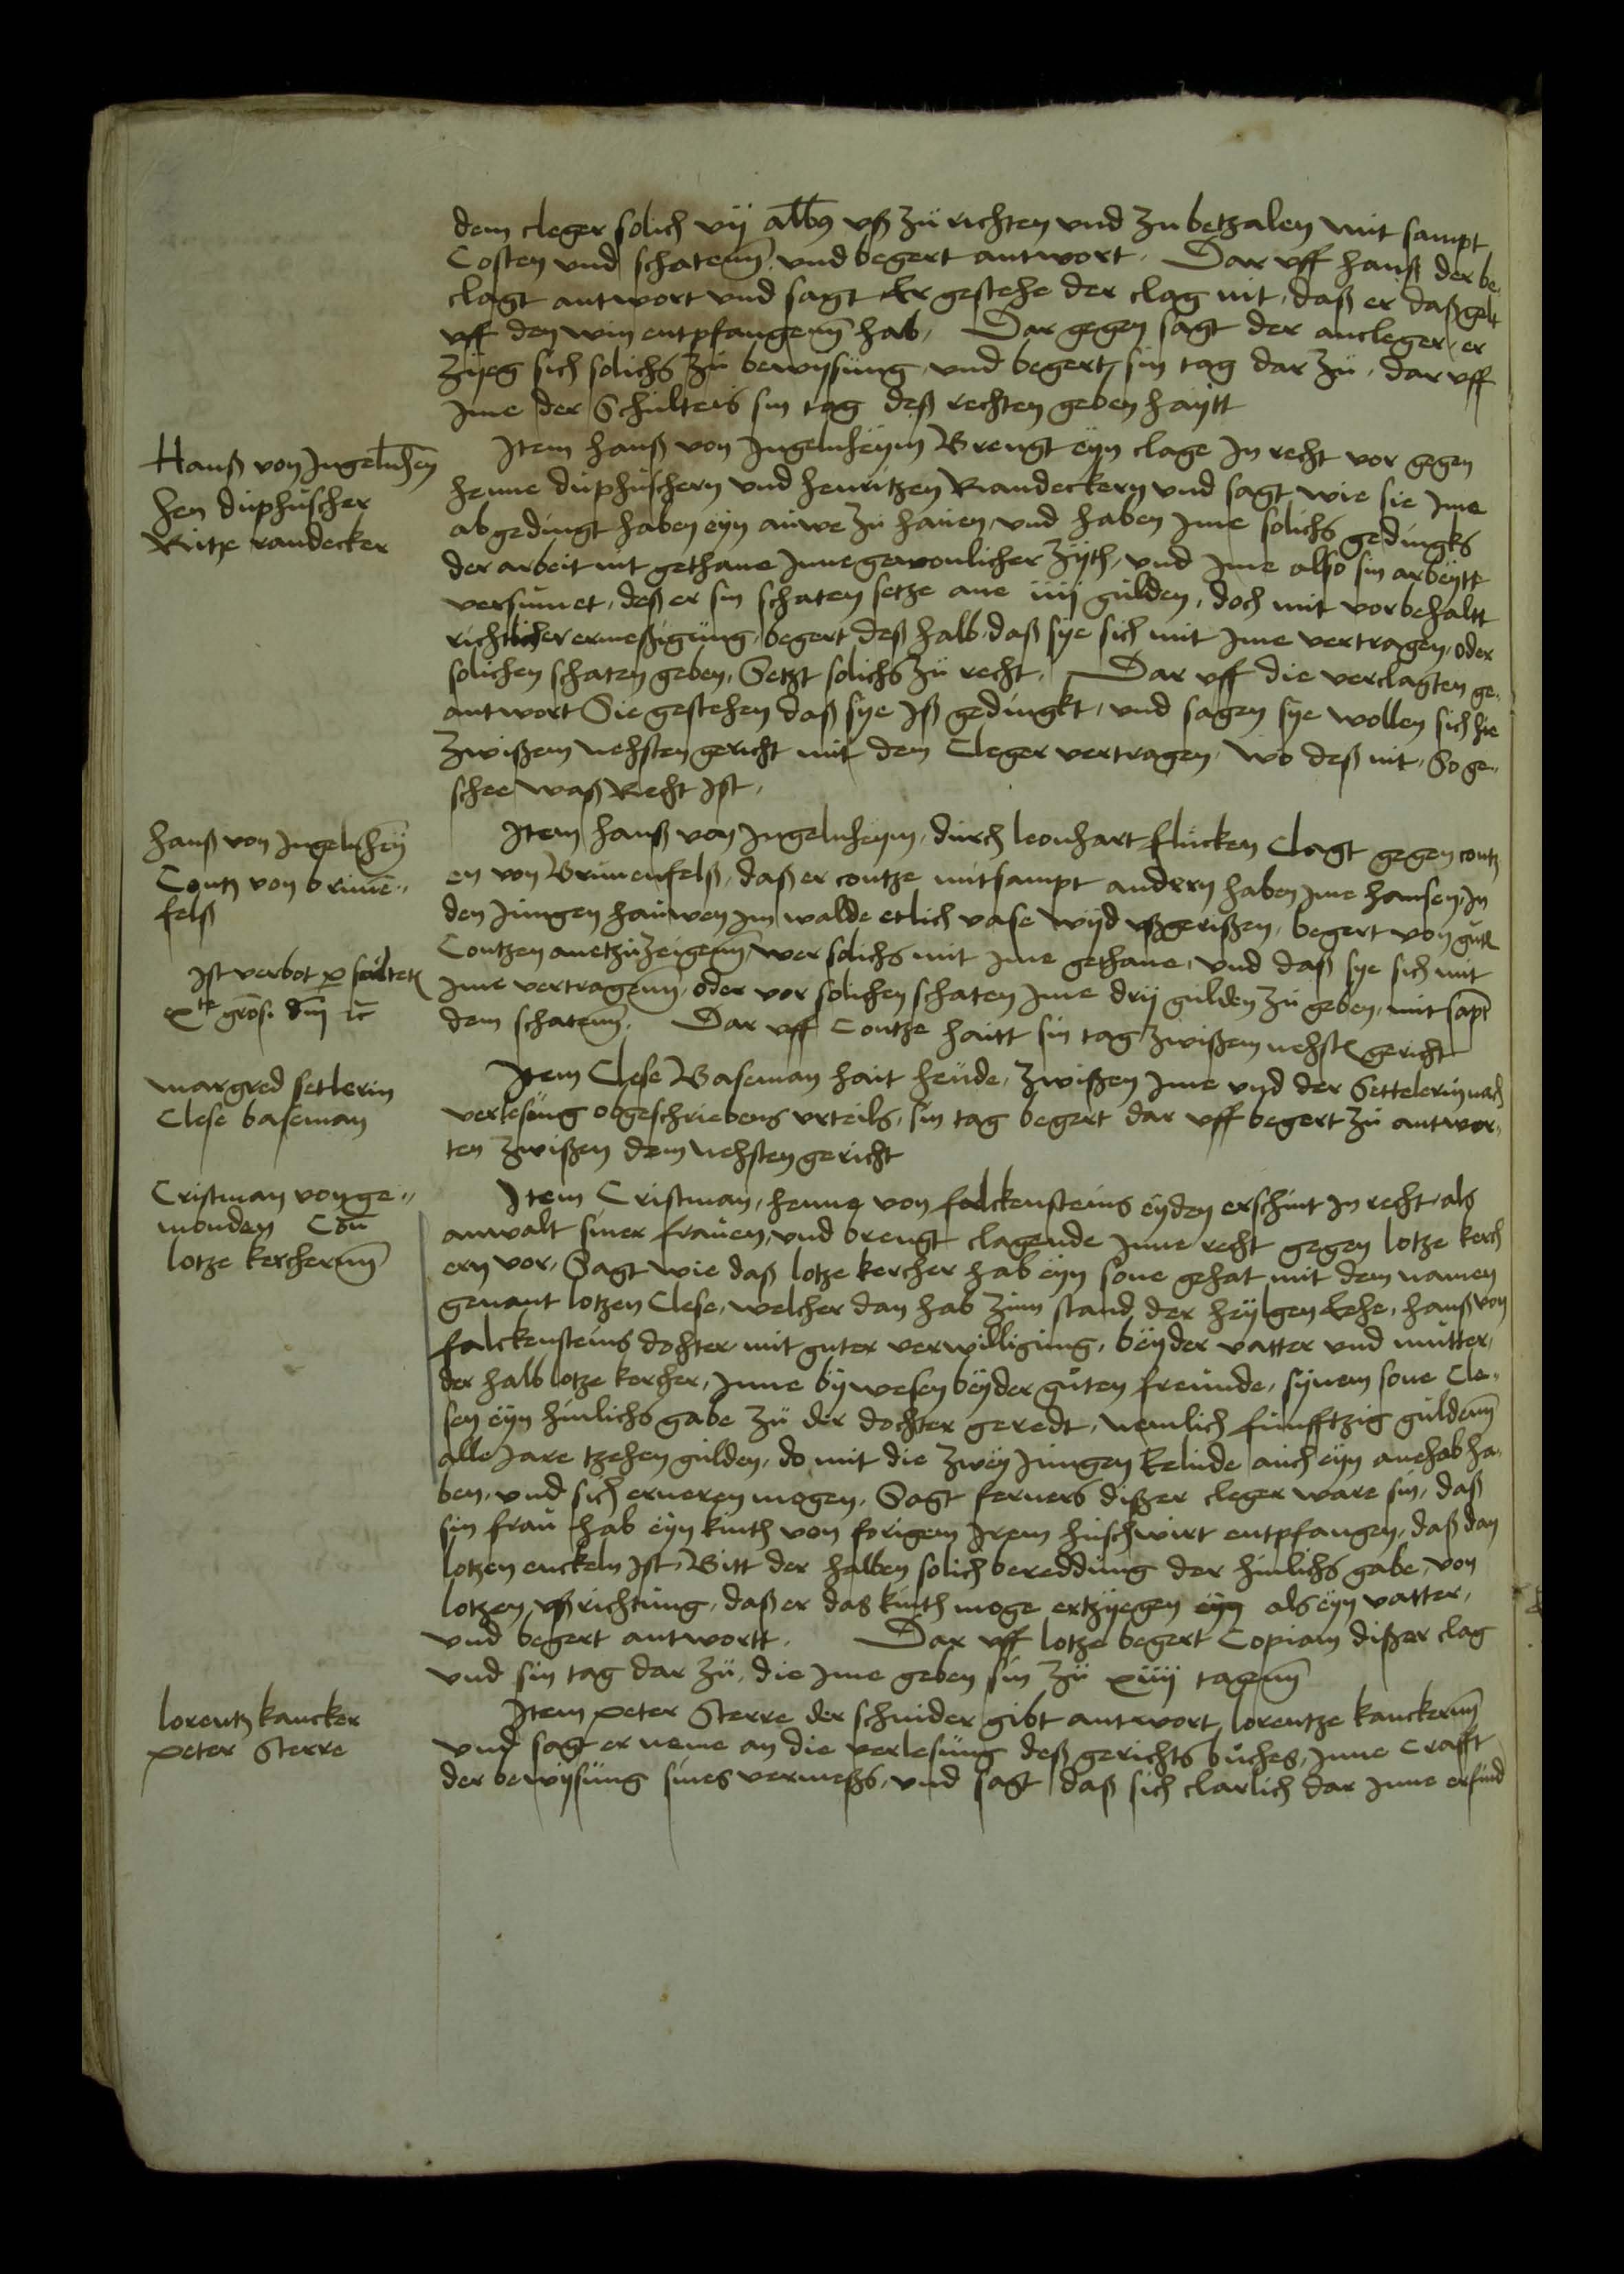 dem cleger solich vij albus vß zü richten vnd zu betzalen mit sampt
Costen vnd schatenn vnd begert antwort. Dar vff hanß der be
clagt antwort vnd sagt Er gestehe der clag nit, daß er daß gelt
vff den win entpfangenn hab, Dar gegen sagt der ancleger, er
zijeg sich solichs zü bewysüng vnd begert sin tag dar zü, dar vff
Jme der Schulteis sin tag deß rechten geben haytt
Hanß von Jngelnhen
hen düphüscher
Ritze randecker
Jtem hanß von Jngelnheym Brengt eyn clage Jn recht vor gegen
henne düphüschern vnd henritzen Randeckern vnd sagt wie sie Jme
abgedingt haben eyn auwe zu hauen, vnd haben Jme solichs gedingks
der arbeit nit gethane Jnne gewonlicher zyth, vnd Jme also sin arbeytt
versumet, deß er sin schaten setze ane iiij gülden, doch mit vorbehaltt
richtlicher ermeßigüng, begert deß halb, daß sye sich mit Jme vertragen, oder
solichen schaten geben, Setzt solichs zü recht, Dar vff die verclagten ge
antwort Sie gestehen daß sye Jß gedingkt, vnd sagen sye wollen sich hie
zwißem nehsten gericht mit dem Cleger vertragen, wo deß nit, So ge
schee waß Recht Jst,
hanß von Jngelnhey
Contz von brunē
felß
Jst verbot per scultetum
Jtem hanß von Jngelnheym, durch leonhart flücken Clagt gegen contz
en von Brunenfelß, daß er contze mitsampt andern haben Jme hansen, Jn
den Jungen hauwen Jm walde etlich vase wyd vßgerißen, begert von
Contzen anetzüzeigenn, wer solichs mit Jme gethane, vnd daß sye sich mit
Jme vertragenn, oder vor solichen schaten Jme drij gulden zü geben, mit sapt
dem schatenn. Dar vff Contze haitt sin tag zwißem nehst gericht
margred setlerin
Clese baseman
Jtem Clese Baseman hait heude, zwißen Jme vnd der Settelerin nach
verlesüng obgeschriebens vrteils, sin tag begert dar vff begert zü antwor
ten zwißen dem nehsten gericht
Cristman von ge
monden Con
lotze kerchernn
Jtem Cristman, henne von falckensteins eyden erschint Jn recht als
anwalt siner frauen, vnd brengt clagende Jnne recht gegen lotze kerch
ern vor, Sagt wie daß lotze kercher hab eyn sone gehat mit dem namen
genant lotzen Clese, welcher dan hab zum stand der heylgen Eehe, hanß von
falckensteins dochter mit guter verwilligüng, beyder vatter vnd mütter,
der halb lotze kercher, Jnne bywesen beyder güten freunde, synem sone Cle
sen eyn hinlichs gabe zü der dochter geredt, nemlich fünfftzig guldenn
alle Jare tzehen gülden, do mit die zwey Jüngen Eelude auch eyn anehab ha
ben, vnd sich erneren mogen, Sagt ferners dißer cleger ware sin, daß
sin frau hab eyn kinth von forigem Jrem huschwirt entpfangen, daß dan
lotzen enckeln Jst, Bitt der halben solich bereddüng der hinlichs gabe, von
lotzen vßrichtüng, daß er das kinth moge ertzyegen eyn als eyn vatter,
vnd begert antwortt. Dar vff lotze begert Copiam dißer clag
vnd sin tag dar zü, die Jme geben sin zü xiiij tagenn
lorentz kancker
peter Sterre
Jtem peter Sterre der schnider gibt antwort lorentze kanckernn
vnd sagt er neme an die verlesüng deß gerichts büches, Jnne crafft
der bewysüng sines vermeßs, vnd sagt daß sich clarlich dar Jnne erfind